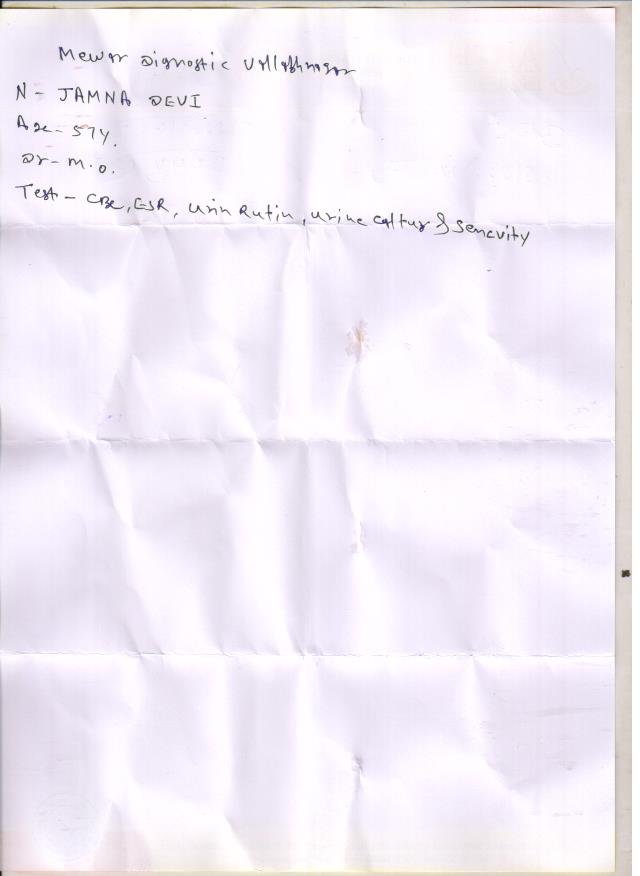 Mewar Dignostic Vallabhnagar
N - JAMNA DEVI
Age - 57Y.
Dr - M.O.
Test - CBC, ESR, Urin Rutin, urine caltur & sencvity